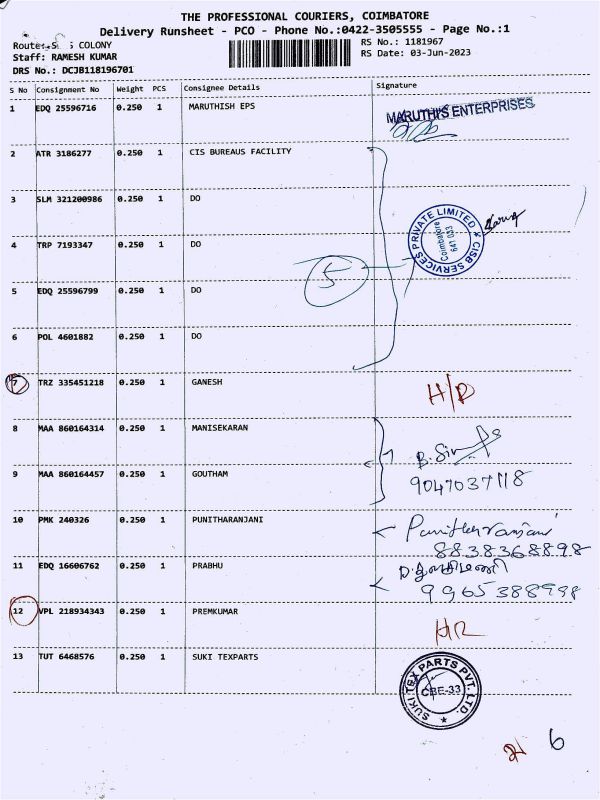 THE PROFESSIONAL COURIERS, COIMBATORE
Delivery Runsheet - PCO - Phone No.:0422-3505555 - Page No.:1
COLONY
Staff: RAMESH KUMAR
DRS No.: DCJB118196701
RS No.: 1181967
RS Date: 03-Jun-2023
S No Consignment No Weight PCS Consignee Details Signature
1 EDQ 25596716 0.250 1 MARUTHISH EPS
MARUTHI'S ENTERPRISES
2 ATR 3186277 0.250 1 CIS BUREAUS FACILITY
3 SLM 321200986 0.250 1 DO
CISB SERVICES PRIVATE LIMITED
Coimbatore
641 033
4 TRP 7193347 0.250 1 DO
5
5 EDQ 25596799 0.250 1 DO
6 POL 4601882 0.250 1 DO
7 TRZ 335451218 0.250 1 GANESH
8 MAA 860164314 0.250 1 MANISEKARAN
9 MAA 860164457 0.250 1 GOUTHAM
9047037118
10 PMK 240326 0.250 1 PUNITHARANJANI
8838368898
11 EDQ 16606762 0.250 1 PRABHU
12 VPL 218934343 0.250 1 PREMKUMAR
13 TUT 6468576 0.250 1 SUKI TEXPARTS
SUKI TEX PARTS PVT. LTD.
CBE-33
6